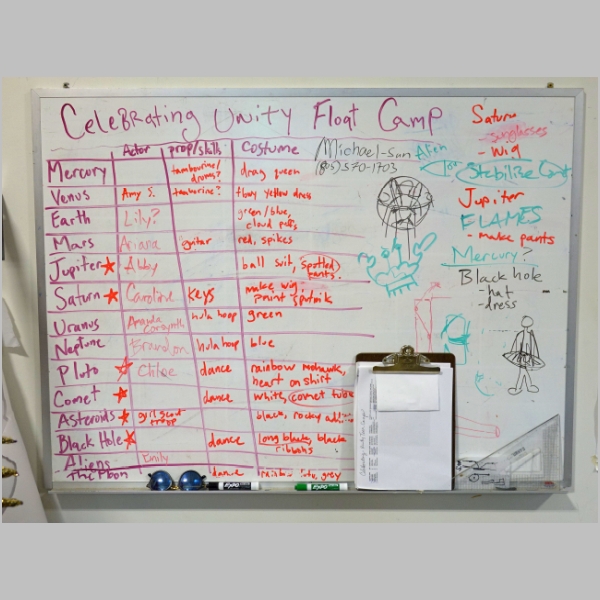 Celebrating Unity Float Camp
Actor prop/skills Costume
Mercury tamborine/ drums? drag queen
Venus Amy S. tamborine? flowy yellow dress
Earth Lily? green/blue, cloud puffs
Mars Ariana guitar red, spikes
Jupiter Abby ball suit, spotted pants
Saturn Caroline keys make wig, paint sputnik
Uranus hula hoop green
Neptune Brandon hula hoop blue
Pluto Chloe dance rainbow mohawk, heart on shirt
Comet dance white, comet tube
Asteroids girl scout troop black, rocky
Black Hole dance long black, black ribbons
Aliens Emily
The Moon dance grey
Michael-Sun
570-1703
Saturn
- sunglasses
- wig
Stabilize
Jupiter
FLAMES
- make pants
Mercury?
Black hole
- hat
- dress
EXPO
EXPO